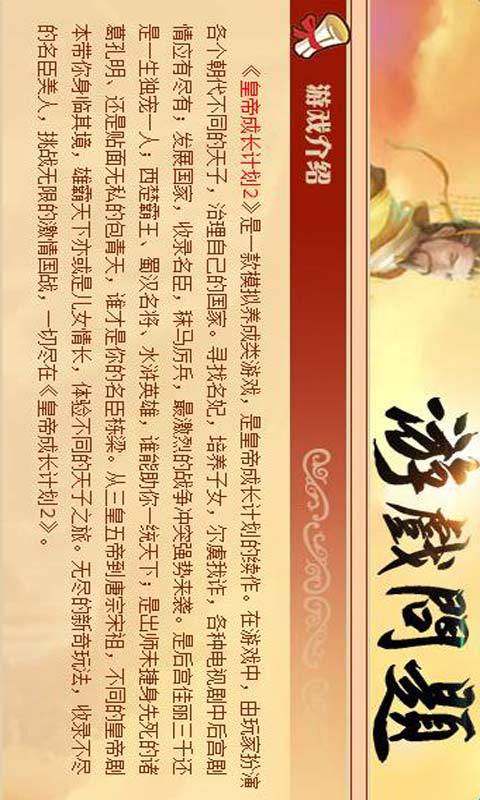 游戲問題
游戏介绍
《皇帝成长计划2》是一款模拟养成类游戏，是皇帝成长计划的续作。在游戏中，由玩家扮演
各个朝代不同的天子，治理自己的国家。寻找名妃，培养子女，尔虞我诈，各种电视剧中后宫剧
情应有尽有；发展国家，收录名臣，秣马厉兵，最激烈的战争冲突强势来袭。是后宫佳丽三千还
是一生独宠一人；西楚霸王、蜀汉名将、水浒英雄，谁能助你一统天下；是出师未捷身先死的诸
葛孔明、还是贴面无私的包青天，谁才是你的名臣栋梁。从三皇五帝到唐宗宋祖，不同的皇帝剧
本带你身临其境，雄霸天下亦或是儿女情长，体验不同的天子之旅。无尽的新奇玩法，收录不尽
的名臣美人，挑战无限的激情国战，一切尽在《皇帝成长计划2》。